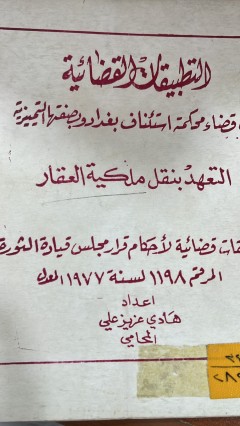 التطبيقات القضائية
قضاء محكمة استئناف بغداد وبصفتها التمييزية
التعهد بنقل ملكية العقار
قضائية لأحكام قرار مجلس قيادة الثورة
المرقم ١١٩٨ لسنة ١٩٧٧ المعدل
اعداد
هادي عزيز علي
المحامي